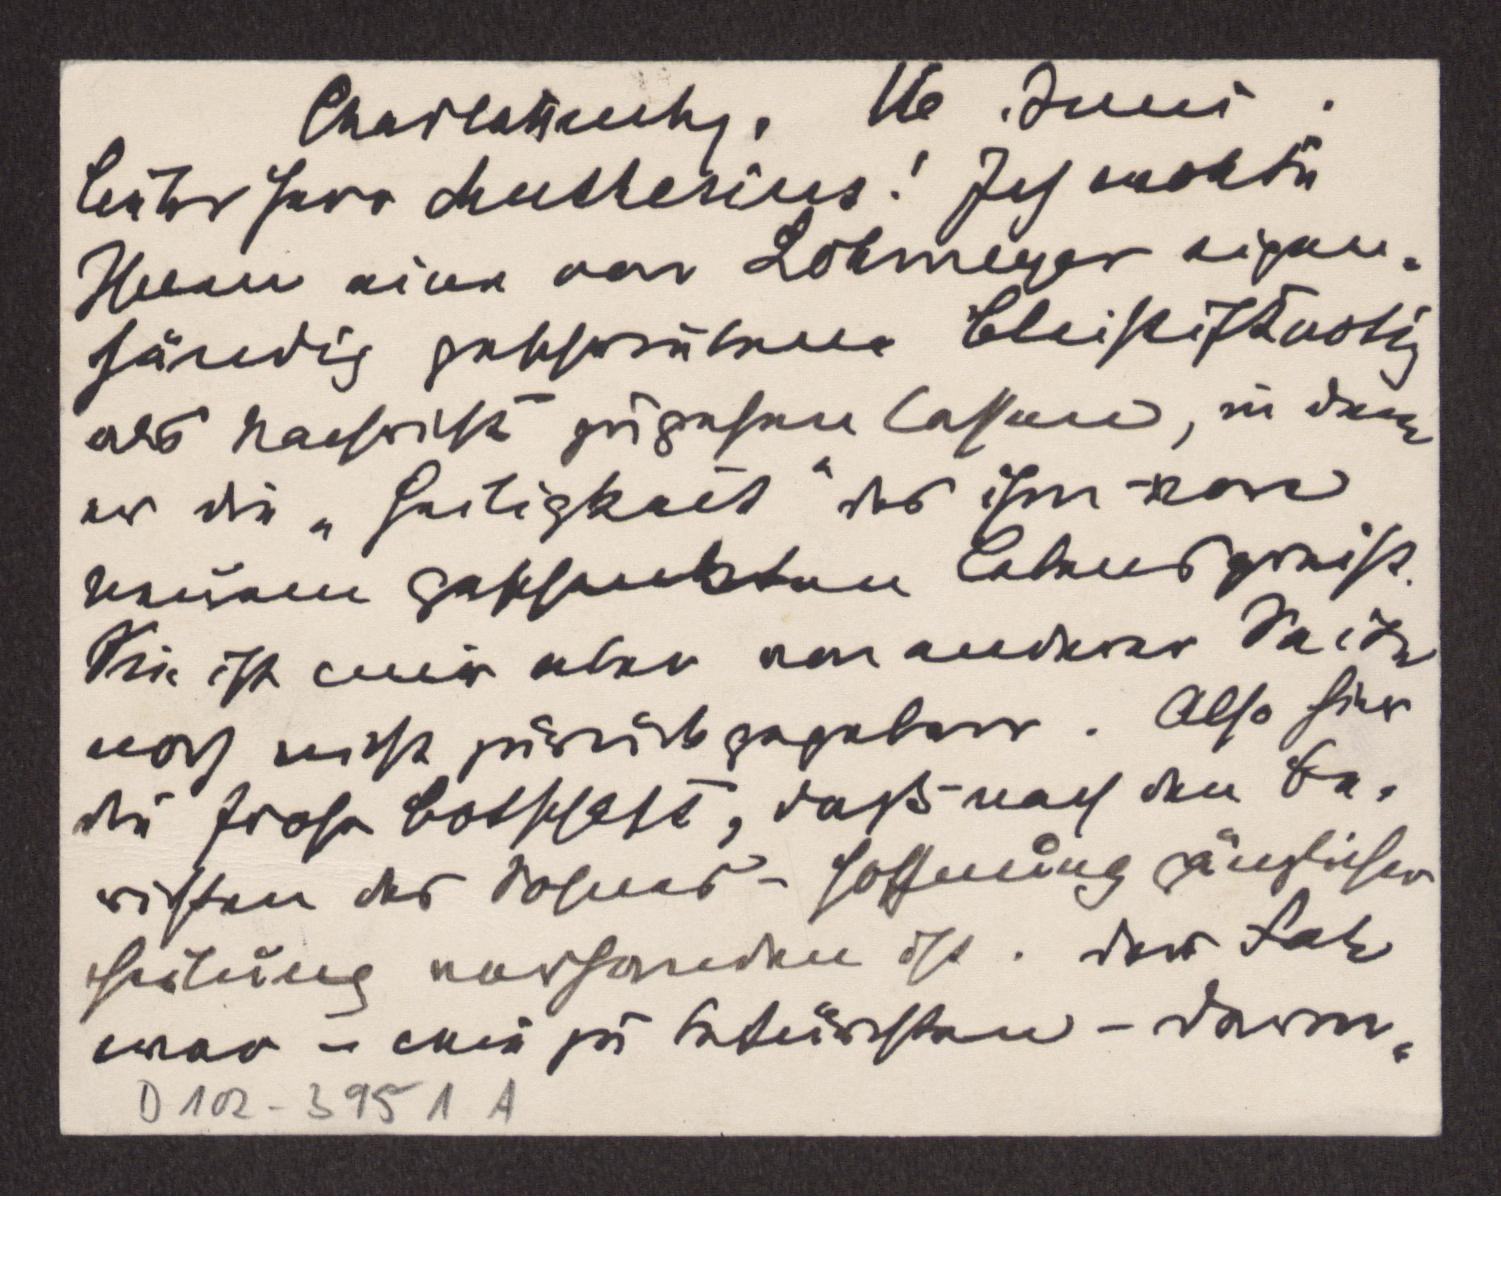 Charlottenbg. 16 Juni.
Lieber Herr Muthesius! Ich wollte
Ihnen eine von Lohmeyer eigen-
händig geschriebene Bleistiftnotiz
als Nachricht zugehen lassen, in der
er die „Heiligkeit" des ihm von
neuem geschenkten Lebens preist.
Sie ist mir aber von anderer Seite
noch nicht zurückgegeben. Also hier
die frohe Botschaft, daß nach den Be-
richten des Sohnes - Hoffnung gänzlicher
Heilung vorhanden ist. Der Fall
war - wie zu befürchten - Darm-
D 102-3951 A